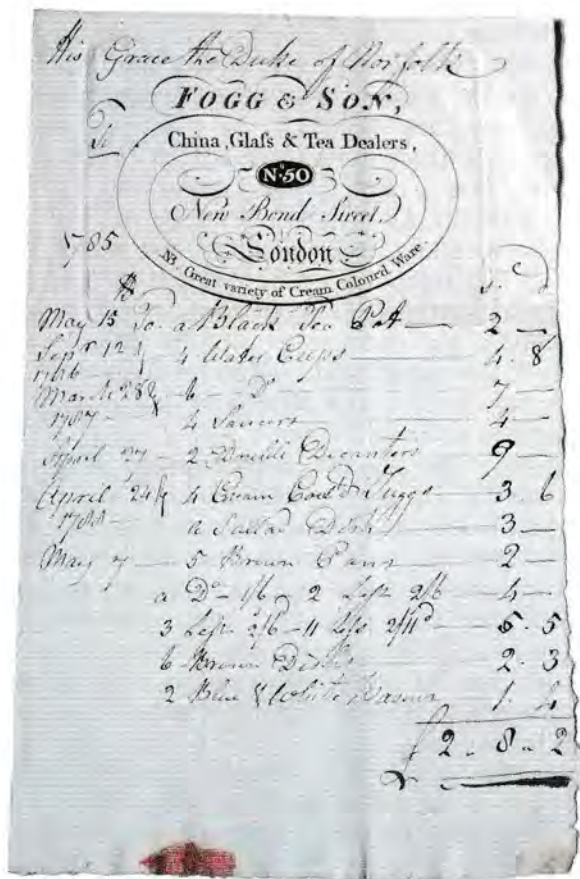 His Grace the Duke of Norfolk
FOGG & SON,
To
China, Glaſs & Tea Dealers,
No. 50
New Bond Street,
1785
London
NB. Great variety of Cream Colourd Ware.
s. d
May 15 To a Black Tea Pot — 2 —
Sepr 12 4 Water Cups — 4 . 8
1786
March 28 6 Do — 7 —
1787 4 Saucers — 4 —
April 27 — 2 Decanters — 9 —
April 24 4 Cream Cold Juggs — 3 . 6
1788 — a Sallad Dish — 3 —
May 7 — 5 Brown Pans — 2 —
a Do 1/6 2 Leſs 2/6 — 4 —
3 Leſs 2/6 — 11 Leſs 2/11d — 5 . 5
6 Brown Dishes — 2 . 3
2 Blue & White — 1 . 4
£ 2 . 8 . 2